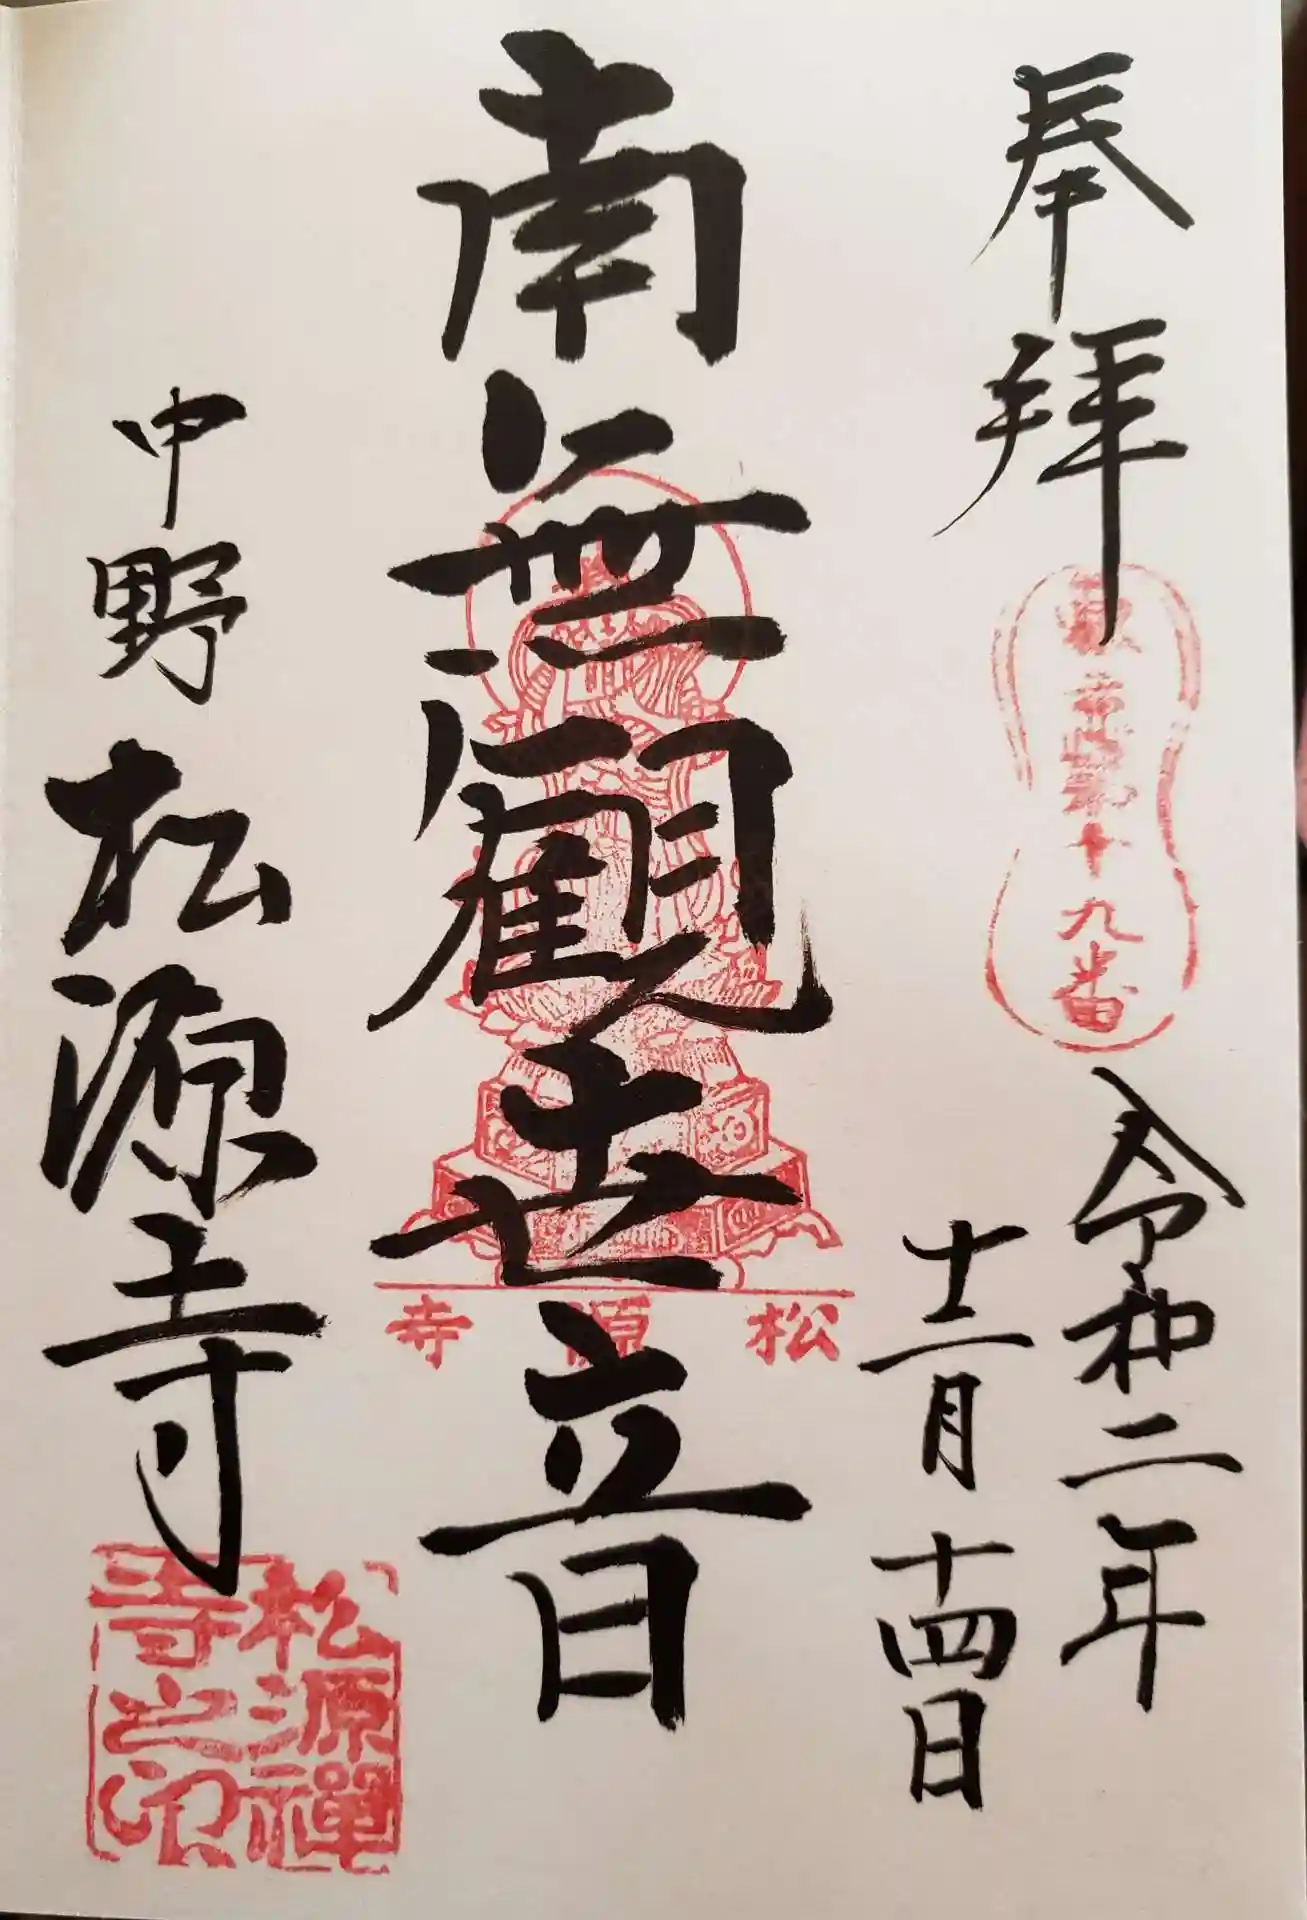 奉拝
十九番
令和二年
十二月十四日
南無観世音
松源寺
中野 松源寺
松源禅
寺之印